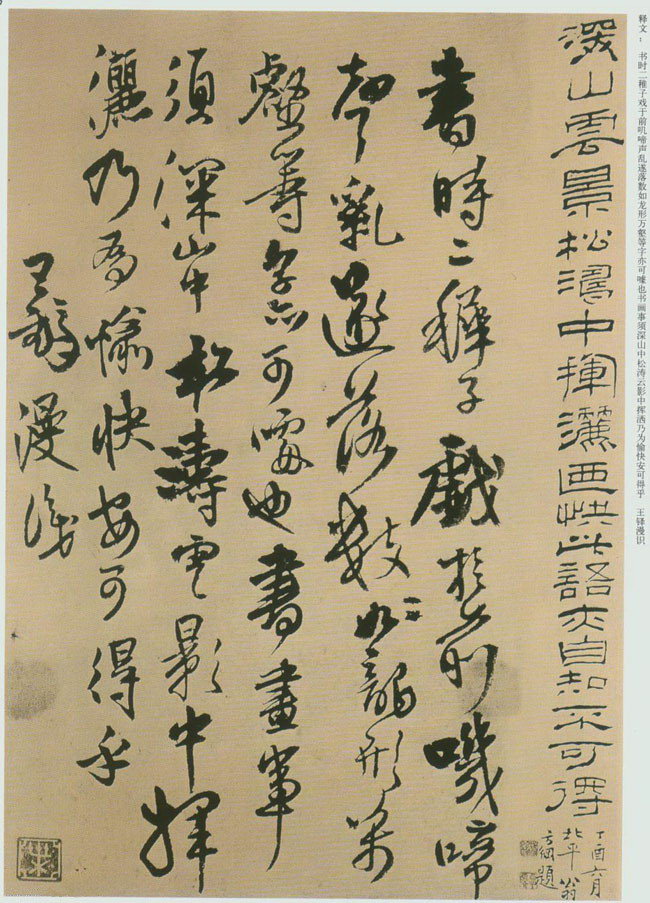 释文： 书时二稚子戏于前叽啼声乱遂落数如龙形万壑等字亦可嘘也书画事须深山中松涛云影中挥洒乃为愉快安可得乎 王铎漫识
深山雲景松濤中揮灑迺快此語亦自知不可得
丁酉六月
北平翁
方綱題
書時二穉子戲於前嘰啼
聲亂遂落數如龍形萬
壑等字亦可噱也書畫事
須深山中松濤雲影中揮
灑乃為愉快安可得乎
王鐸漫識